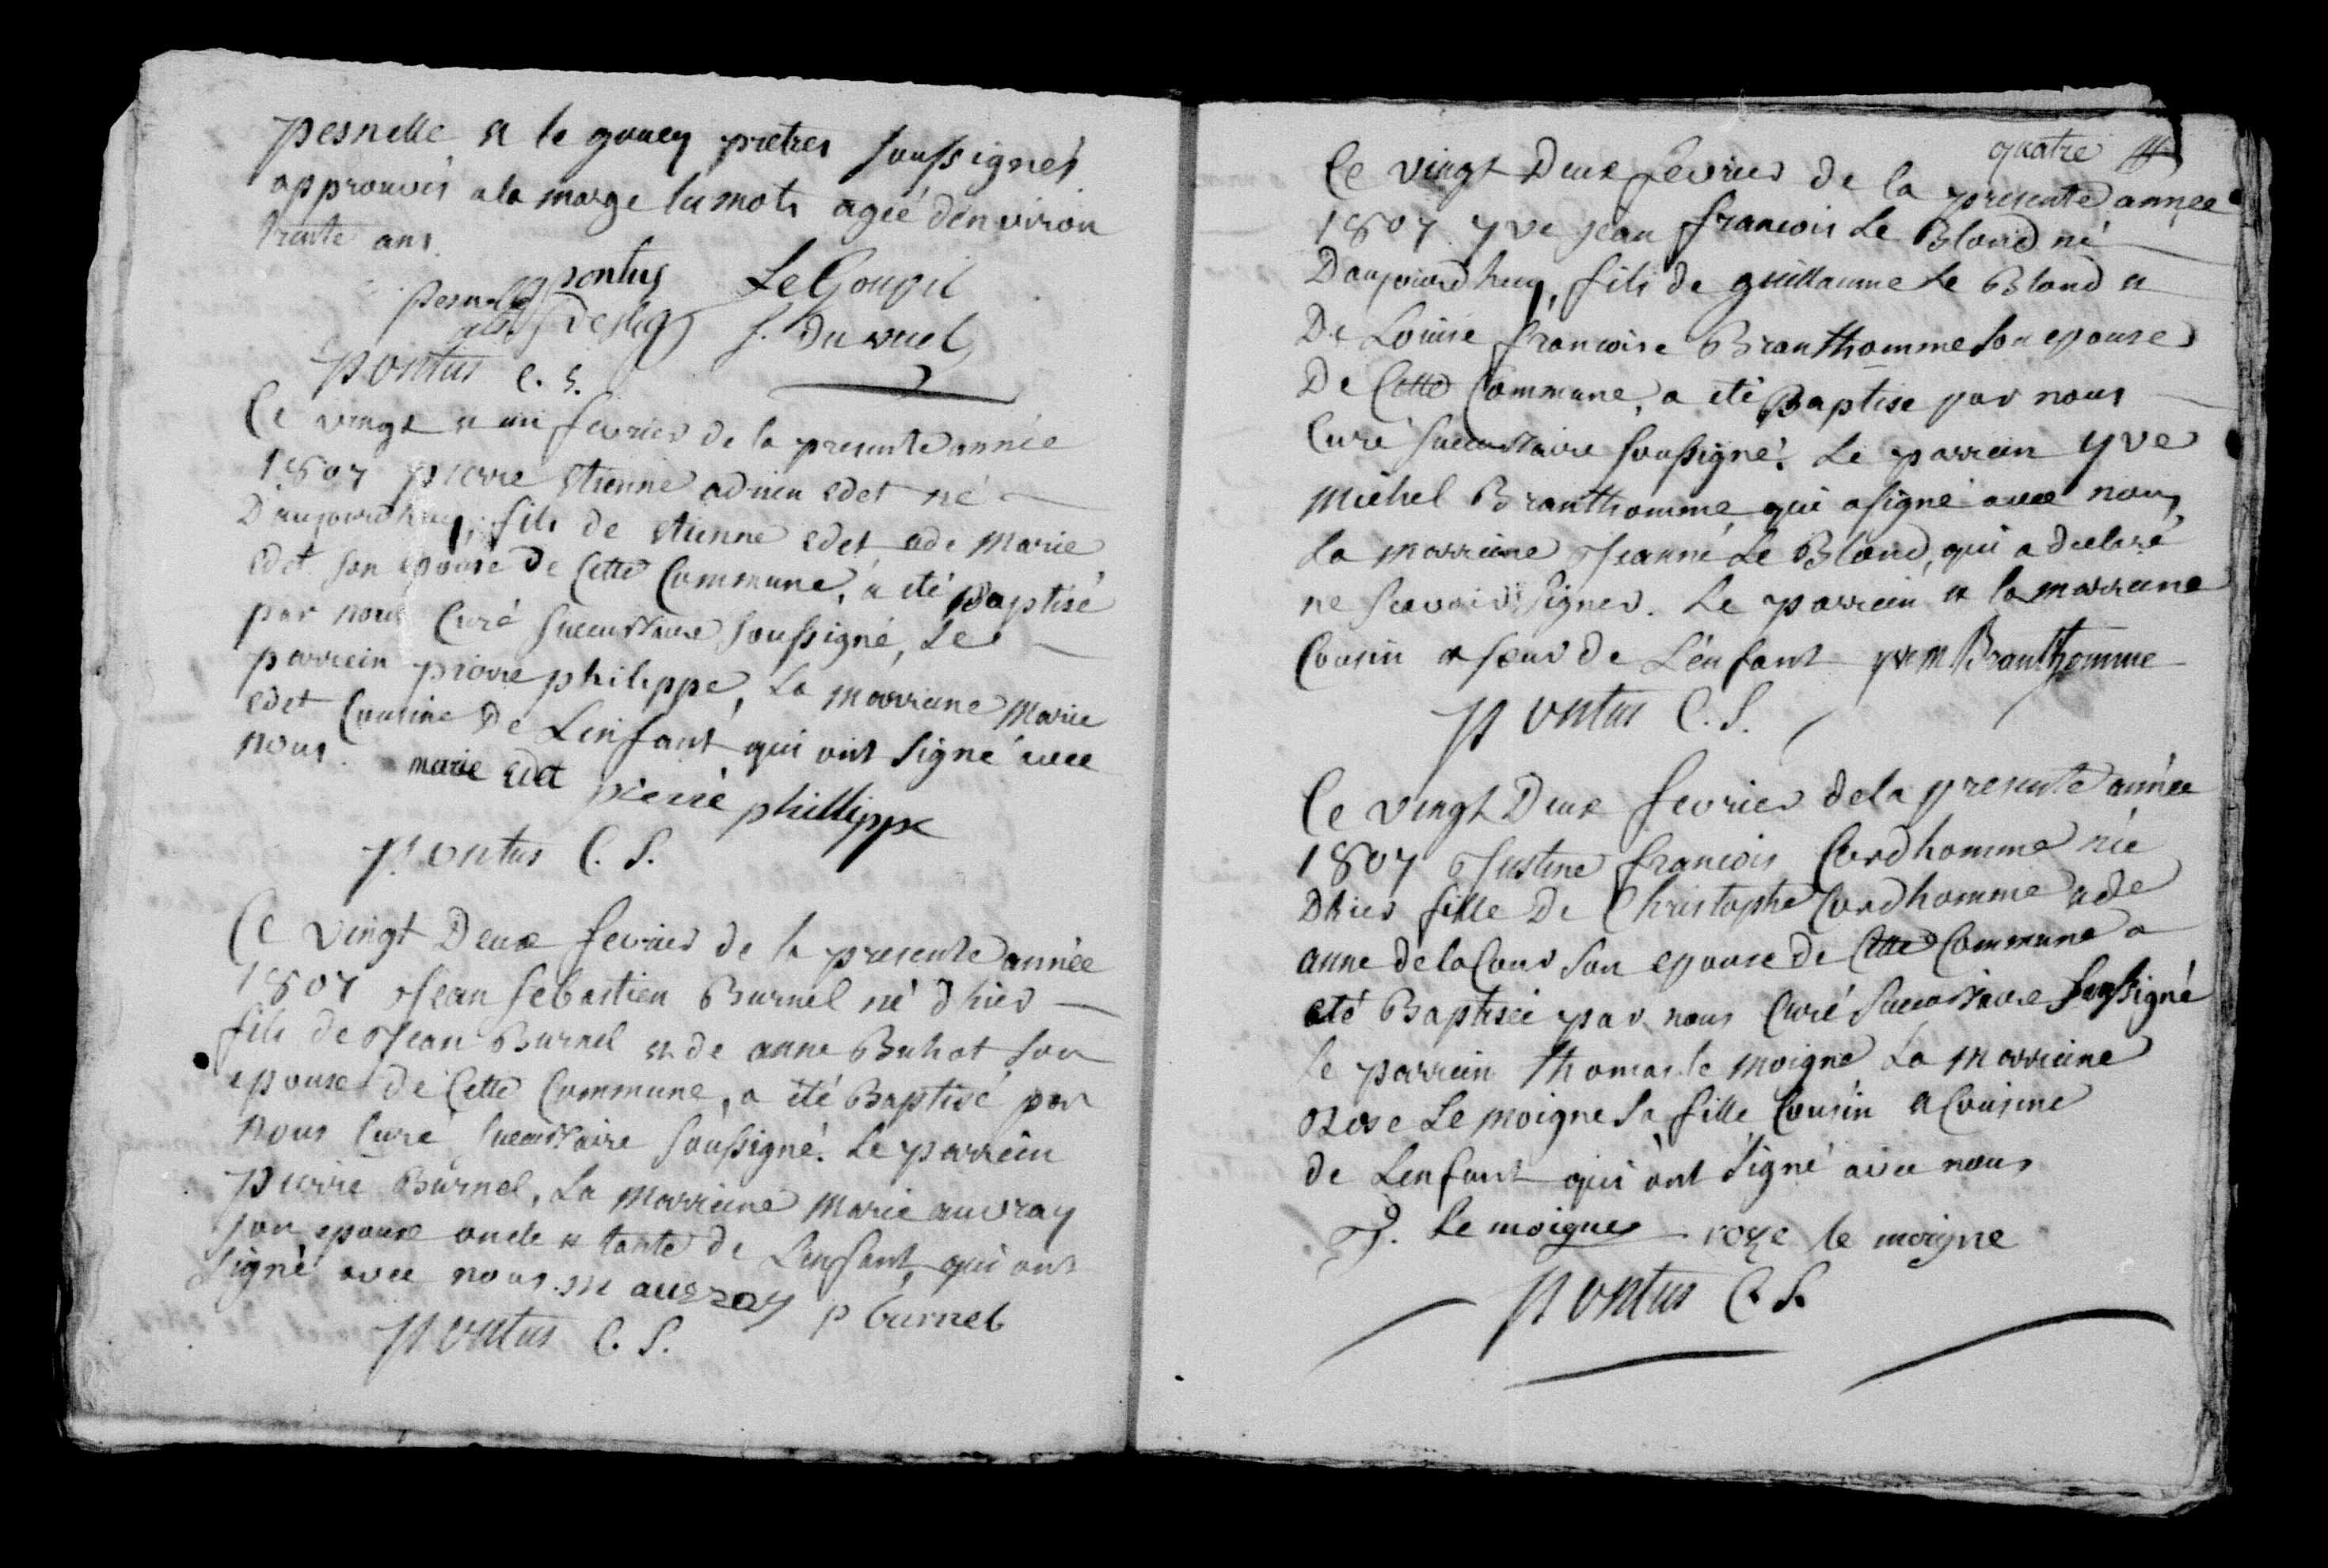 pesnelle et le gouey pretres soussignés
approuvés a la marge les mots agée d'environ
trente ans.
pontus LeGoupil
pesnelle f. Duvuel
pontus C. S.
Ce vingt et un fevrier de la presente année
1807 pierre Etienne adrien edet né
D'aujourdhuy, fils de etienne edet et de marie
edet son epouse de Cette Commune, a eté Baptisé
par nous Curé succursaire soussigné, Le
parrein pierre philippe, La marreine marie
edet Cousine de L'enfant qui ont signé avec
nous. marie edet pierre phillippe
pontus C. S.
Ce vingt Deux fevrier de la presente année
1807 Jean sebastien Burnel né d'hier
fils de Jean Burnel et de anne Buhot son
epouse de Cette Commune, a été Baptisé par
nous Curé succursaire soussigné. Le parrein
pierre Burnel, La marreine marie auvray
son epouse oncle et tante de L'enfant, qui ont
signé avec nous. m auvray p burnel
pontus C. S.
quatre
Ce vingt Deux fevrier de la presente année
1807 yve jean francois Le Blond né
Daujourdhuy, fils de guillaume Le Blond et
De Louise francoise Branthomme son epouse
De Cette Commune, a eté Baptise par nous
Curé succursaire soussigné. Le parrein yve
michel Branthomme qui a signé avec nous,
La marreine Jeanne Le Blond, qui a declaré
ne scavoir signer. Le parrein et la marreine
Cousin et soeur de L'enfant yve m Branthomme
pontus C. S.
Ce vingt Deux fevrier de la presente année
1807 Justine francois Cordhomme née
D'hier fille de Christophe Cordhomme et de
anne de la Cour son epouse de Cette Commune a
eté Baptisée par nous Curé succursaire soussigné
le parrein thomas le moigne La marreine
Rose Le moigne sa fille Cousin et Cousine
de L'enfant qui ont signé avec nous
T. Le moigne roze le moigne
pontus C. S.